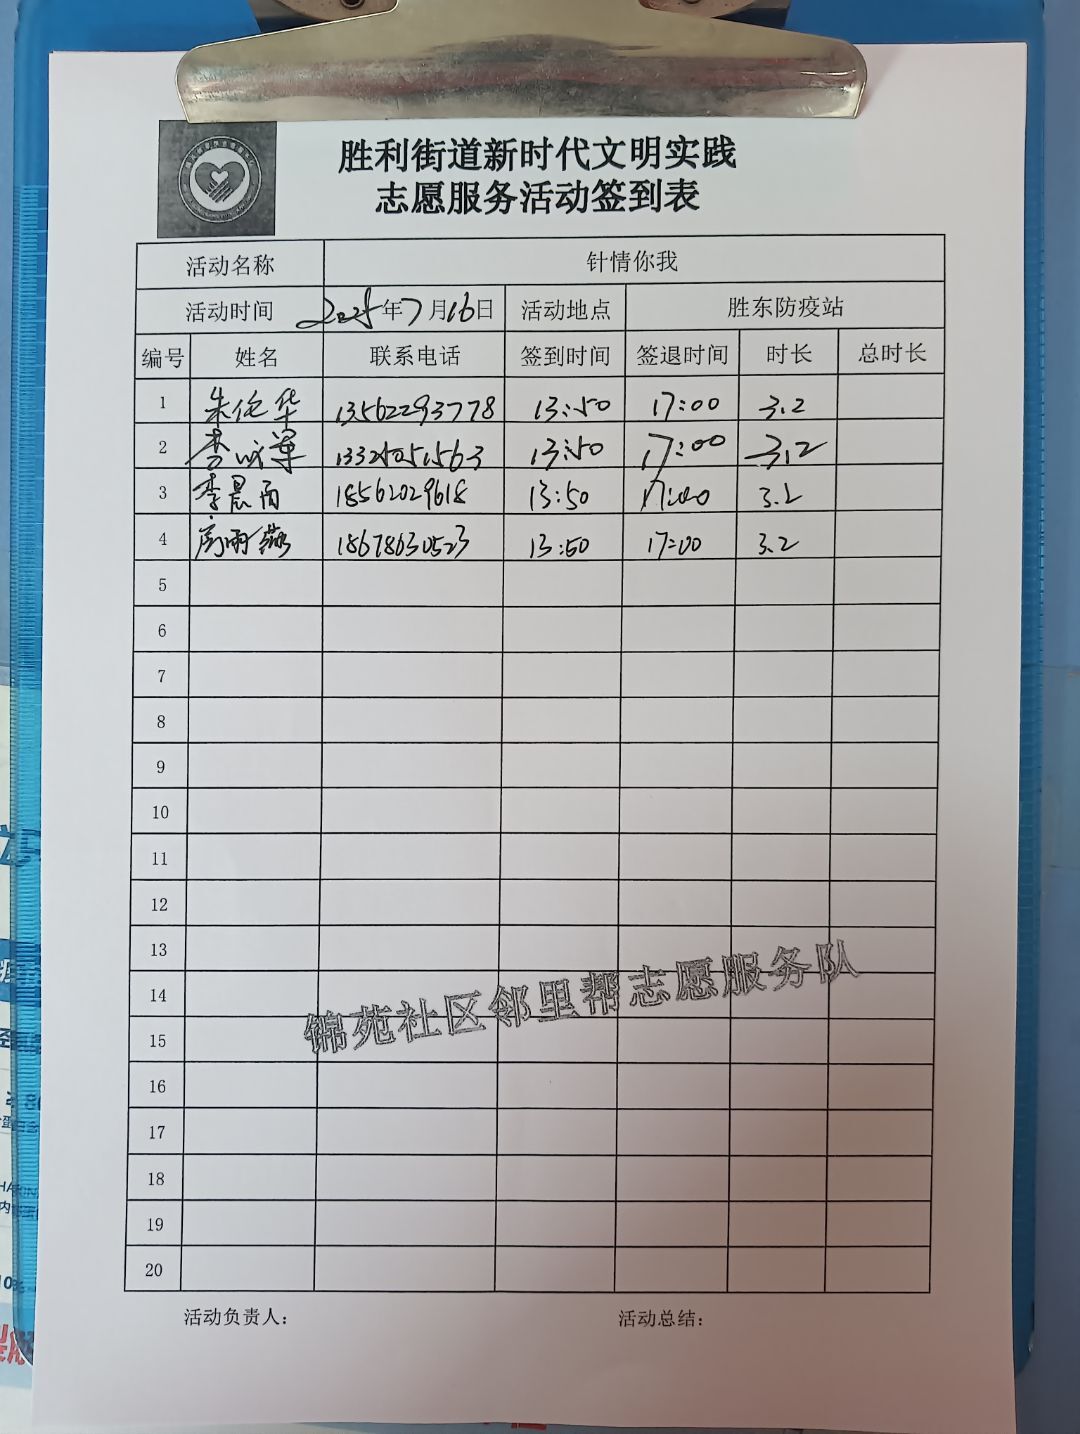 胜利街道新时代文明实践
志愿服务活动签到表
活动名称 针情你我
活动时间 2025年7月16日 活动地点 胜东防疫站
编号 姓名 联系电话 签到时间 签退时间 时长 总时长
1 朱伦华 13562293778 13:50 17:00 3.2
2 李 13:50 17:00 3.2
3 李晨雨 18562029618 13:50 17:00 3.2
4 雨燕 18678630523 13:50 17:00 3.2
5
6
7
8
9
10
11
12
13
14
锦苑社区邻里帮志愿服务队
15
16
17
18
19
20
活动负责人: 活动总结: